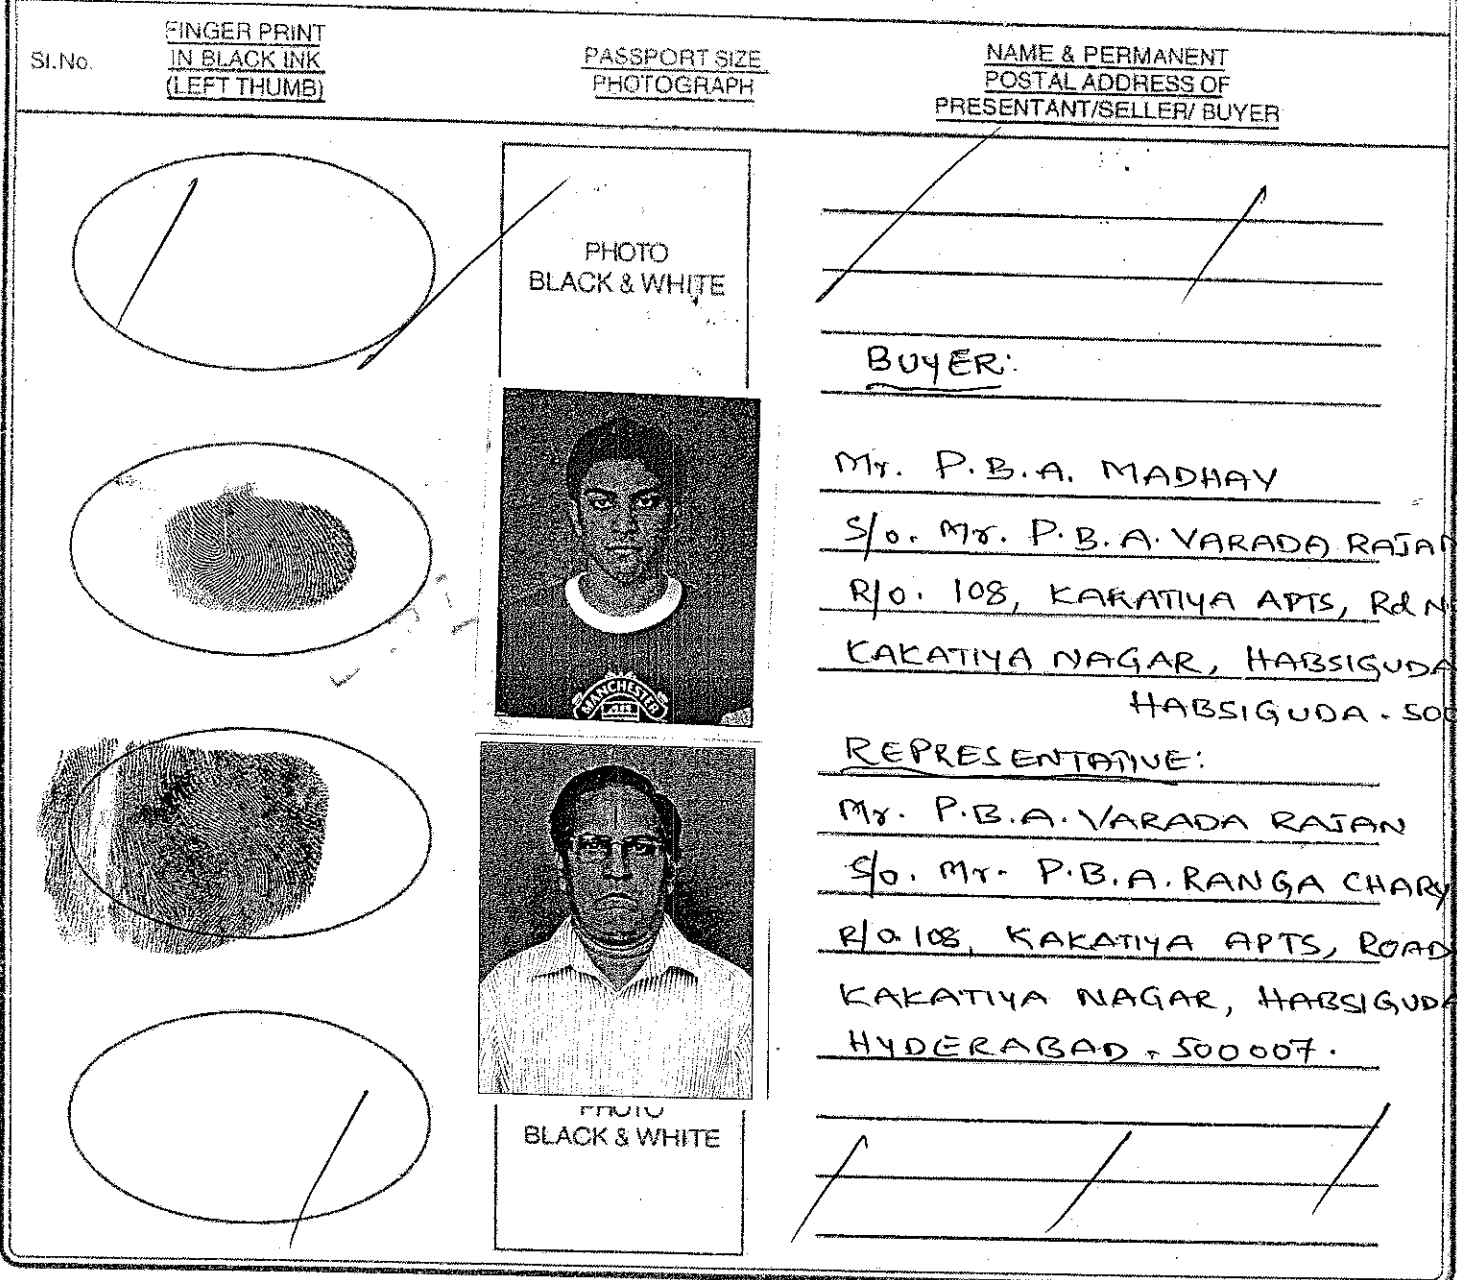 Sl.No.
FINGER PRINT
IN BLACK INK
(LEFT THUMB)
PASSPORT SIZE
PHOTOGRAPH
NAME & PERMANENT
POSTAL ADDRESS OF
PRESENTANT/SELLER/ BUYER
PHOTO
BLACK & WHITE
BUYER:
Mr. P.B.A. MADHAV
S/o. Mr. P.B.A. VARADA RAJAN
R/o. 108, KAKATIYA APTS, Rd N
KAKATIYA NAGAR, HABSIGUDA
HABSIGUDA. 500
MANCHESTER
REPRESENTATIVE:
Mr. P.B.A. VARADA RAJAN
S/o. Mr. P.B.A. RANGA CHARY
R/o 108, KAKATIYA APTS, ROAD
KAKATIYA NAGAR, HABSIGUDA
HYDERABAD. 500007.
PHOTO
BLACK & WHITE